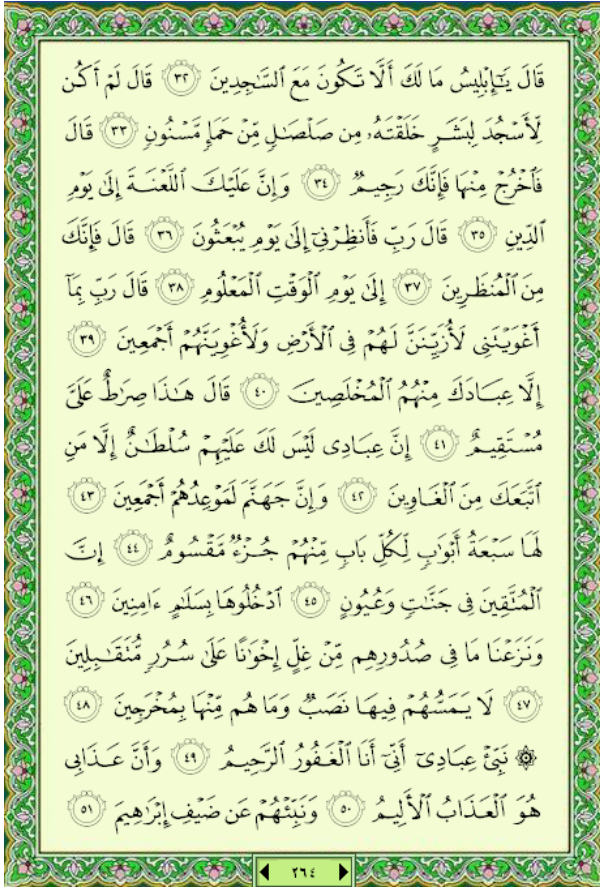 قَالَ يَـٰٓإِبْلِيسُ مَا لَكَ أَلَّا تَكُونَ مَعَ ٱلسَّـٰجِدِينَ ٣٢ قَالَ لَمْ أَكُن
لِّأَسْجُدَ لِبَشَرٍ خَلَقْتَهُۥ مِن صَلْصَـٰلٍ مِّنْ حَمَإٍ مَّسْنُونٍ ٣٣ قَالَ
فَٱخْرُجْ مِنْهَا فَإِنَّكَ رَجِيمٌ ٣٤ وَإِنَّ عَلَيْكَ ٱللَّعْنَةَ إِلَىٰ يَوْمِ
ٱلدِّينِ ٣٥ قَالَ رَبِّ فَأَنظِرْنِىٓ إِلَىٰ يَوْمِ يُبْعَثُونَ ٣٦ قَالَ فَإِنَّكَ
مِنَ ٱلْمُنظَرِينَ ٣٧ إِلَىٰ يَوْمِ ٱلْوَقْتِ ٱلْمَعْلُومِ ٣٨ قَالَ رَبِّ بِمَآ
أَغْوَيْتَنِى لَأُزَيِّنَنَّ لَهُمْ فِى ٱلْأَرْضِ وَلَأُغْوِيَنَّهُمْ أَجْمَعِينَ ٣٩
إِلَّا عِبَادَكَ مِنْهُمُ ٱلْمُخْلَصِينَ ٤٠ قَالَ هَـٰذَا صِرَٰطٌ عَلَىَّ
مُسْتَقِيمٌ ٤١ إِنَّ عِبَادِى لَيْسَ لَكَ عَلَيْهِمْ سُلْطَـٰنٌ إِلَّا مَنِ
ٱتَّبَعَكَ مِنَ ٱلْغَاوِينَ ٤٢ وَإِنَّ جَهَنَّمَ لَمَوْعِدُهُمْ أَجْمَعِينَ ٤٣
لَهَا سَبْعَةُ أَبْوَٰبٍ لِّكُلِّ بَابٍ مِّنْهُمْ جُزْءٌ مَّقْسُومٌ ٤٤ إِنَّ
ٱلْمُتَّقِينَ فِى جَنَّـٰتٍ وَعُيُونٍ ٤٥ ٱدْخُلُوهَا بِسَلَـٰمٍ ءَامِنِينَ ٤٦
وَنَزَعْنَا مَا فِى صُدُورِهِم مِّنْ غِلٍّ إِخْوَٰنًا عَلَىٰ سُرُرٍ مُّتَقَـٰبِلِينَ
٤٧ لَا يَمَسُّهُمْ فِيهَا نَصَبٌ وَمَا هُم مِّنْهَا بِمُخْرَجِينَ ٤٨
۞ نَبِّئْ عِبَادِىٓ أَنِّىٓ أَنَا ٱلْغَفُورُ ٱلرَّحِيمُ ٤٩ وَأَنَّ عَذَابِى
هُوَ ٱلْعَذَابُ ٱلْأَلِيمُ ٥٠ وَنَبِّئْهُمْ عَن ضَيْفِ إِبْرَٰهِيمَ ٥١
٢٦٤